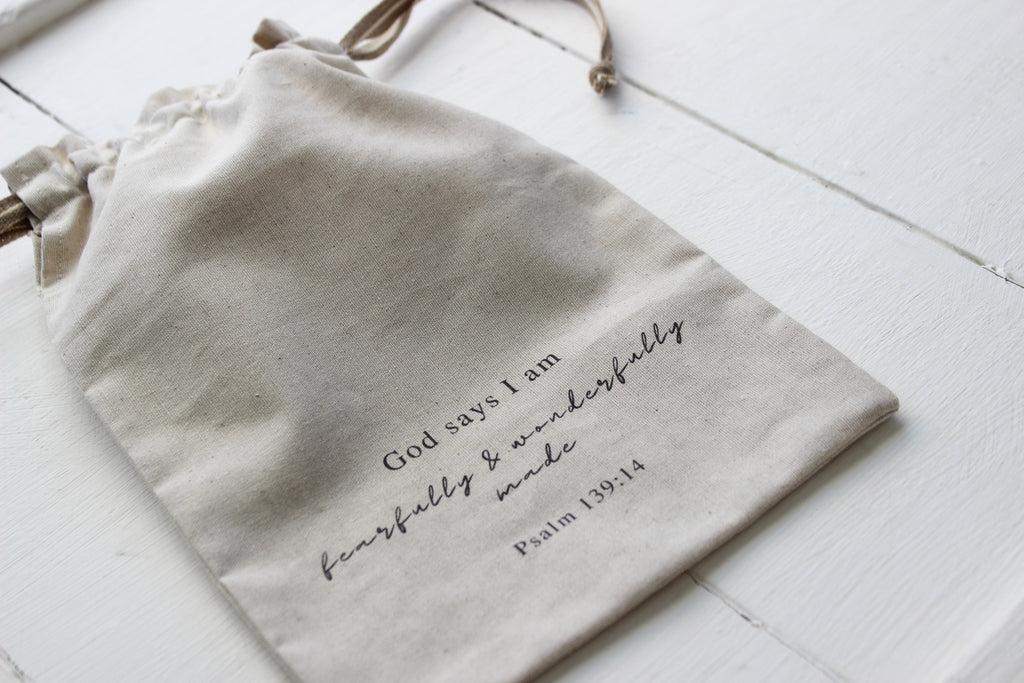 God says I am
fearfully & wonderfully
made
Psalm 139:14